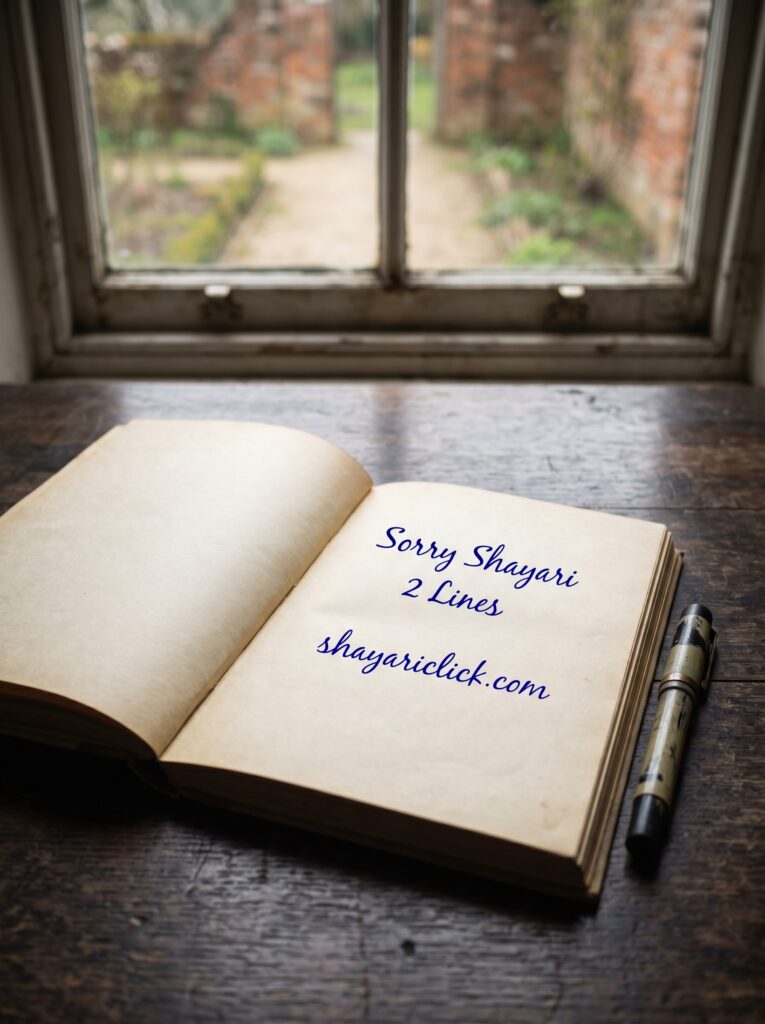 Sorry Shayari
2 Lines
shayariclick.com